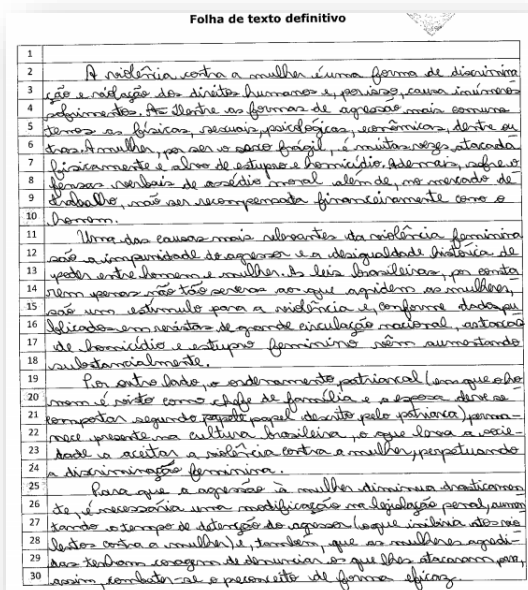 Folha de texto definitivo
1
2 A violência contra a mulher é uma forma de discrimina
3 ção e violação dos direitos humanos e, por isso, causa inúmeros
4 sofrimentos. As dentre as formas de agressão mais comuns
5 temos as físicas, sexuais, psicológicas, econômicas, dentre ou
6 tras. A mulher, por ser o sexo frágil, é muitas vezes atacada
7 fisicamente e alvo de estupro e homicídio. Ademais, sofre o
8 fensas verbais de assédio moral além de, no mercado de
9 trabalho, não ser recompensada financeiramente como o
10 homem.
11 Uma das causas mais relevantes da violência feminina
12 são a impunidade do agressor e a desigualdade histórica de
13 poder entre homem e mulher. As leis brasileiras, por conta
14 rem penas não tão severas aos que agridem as mulheres,
15 são um estímulo para a violência e, conforme dados pu
16 blicados em revistas de grande circulação nacional, os casos
17 de homicídio e estupro feminino vêm aumentando
18 substancialmente.
19 Por outro lado, o ordenamento patriarcal (em que o ho
20 mem é visto como chefe de família e a esposa deve se
21 comportar segundo papel descrito pelo patriarca) perma-
22 nece presente na cultura brasileira, o que leva a socie-
23 dade a aceitar a violência contra a mulher, perpetuando
24 a discriminação feminina.
25 Para que a agressão à mulher diminua drasticamen
26 te, é necessária uma modificação na legislação penal, aumen
27 tando o tempo de detenção do agressor (o que inibiria atos vio
28 lentos contra a mulher) e, também, que as mulheres agredi-
29 das tenham coragem de denunciar os que lhes atacaram para,
30 assim, combater-se o preconceito de forma eficaz.